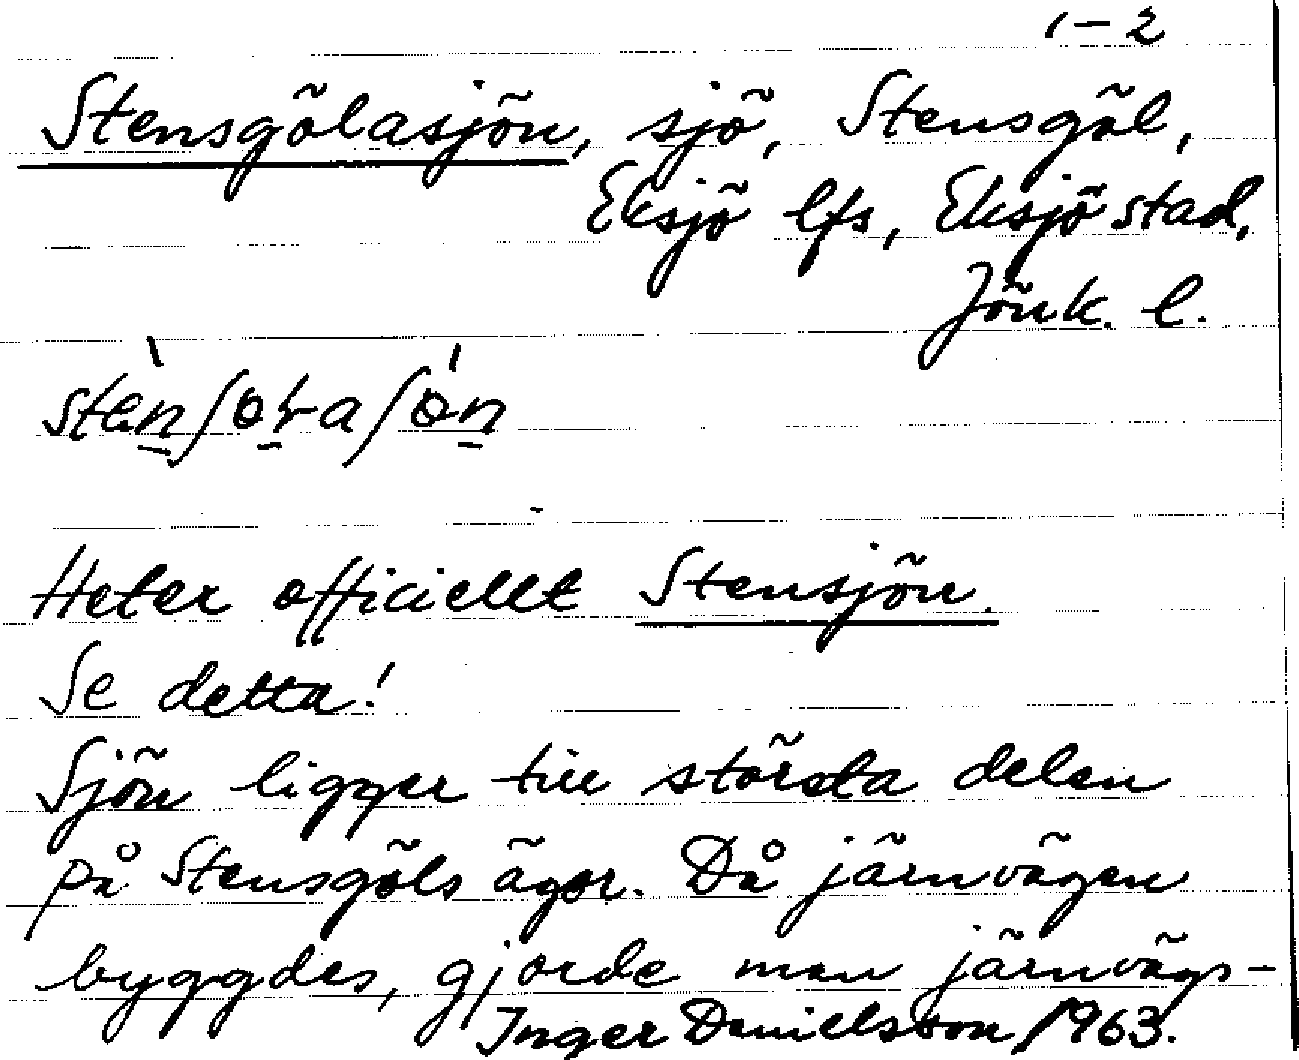 1-2
Stensgölasjön, sjö, Stensgöl,
Eksjö lfs, Eksjö stad,
Jönk. l.
Heter officiellt Stensjön.
Se detta!
Sjön ligger till största delen
på Stensgöls ägor. Då järnvägen
byggdes, gjorde man järnvägs-
Inger Danielsson 1963.